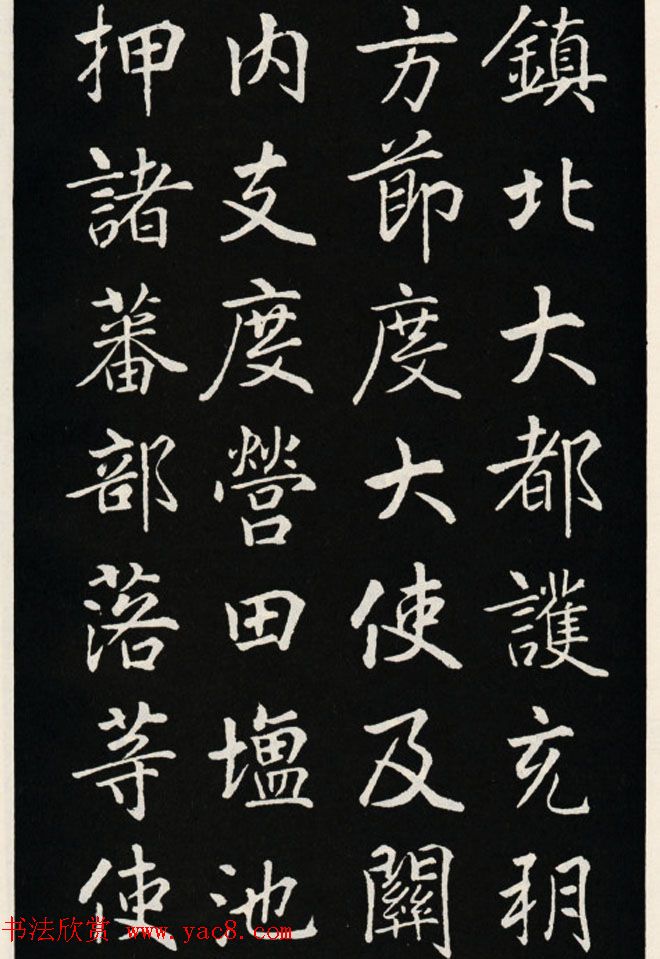 鎮北大都護充朔
方節度大使及關
内支度營田塩池
押諸蕃部落等使
书法欣赏 www.yac8.com